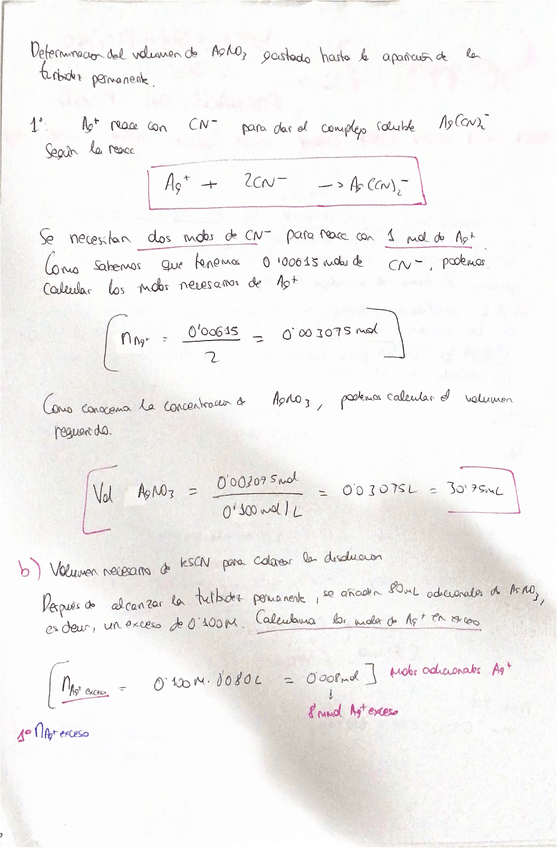 Determinacion del volumen de AgNO3 gastado hasta la aparición de la
turbidez permanente.
1º Ag+ reacc con CN- para dar el complejo soluble Ag(CN)2-
Según la reacc
Ag+ + 2CN- -> Ag(CN)2-
Se necesitan dos moles de CN- para reacc con 1 mol de Ag+
Como sabemos que tenemos 0'00615 moles de CN-, podemos
calcular los moles necesarios de Ag+
nAg+ = 0'00615 / 2 = 0'003075 mol
Como conocemos la concentracion de AgNO3, podemos calcular el volumen
requerido.
Vol AgNO3 = 0'003075mol / 0'100 mol/L = 0'03075L = 30'75mL
b) Volumen necesario de KSCN para colorear la disolucion
Después de alcanzar la turbidez permanente, se añaden 80mL adicionales de AgNO3,
es decir, un exceso de 0'100M. Calculamos los moles de Ag+ en exceso
nAg+ exceso = 0'100M · 0'080L = 0'008mol] Moles adicionales Ag+
↓
8 mmol Ag+ exceso
1º nAg+ exceso